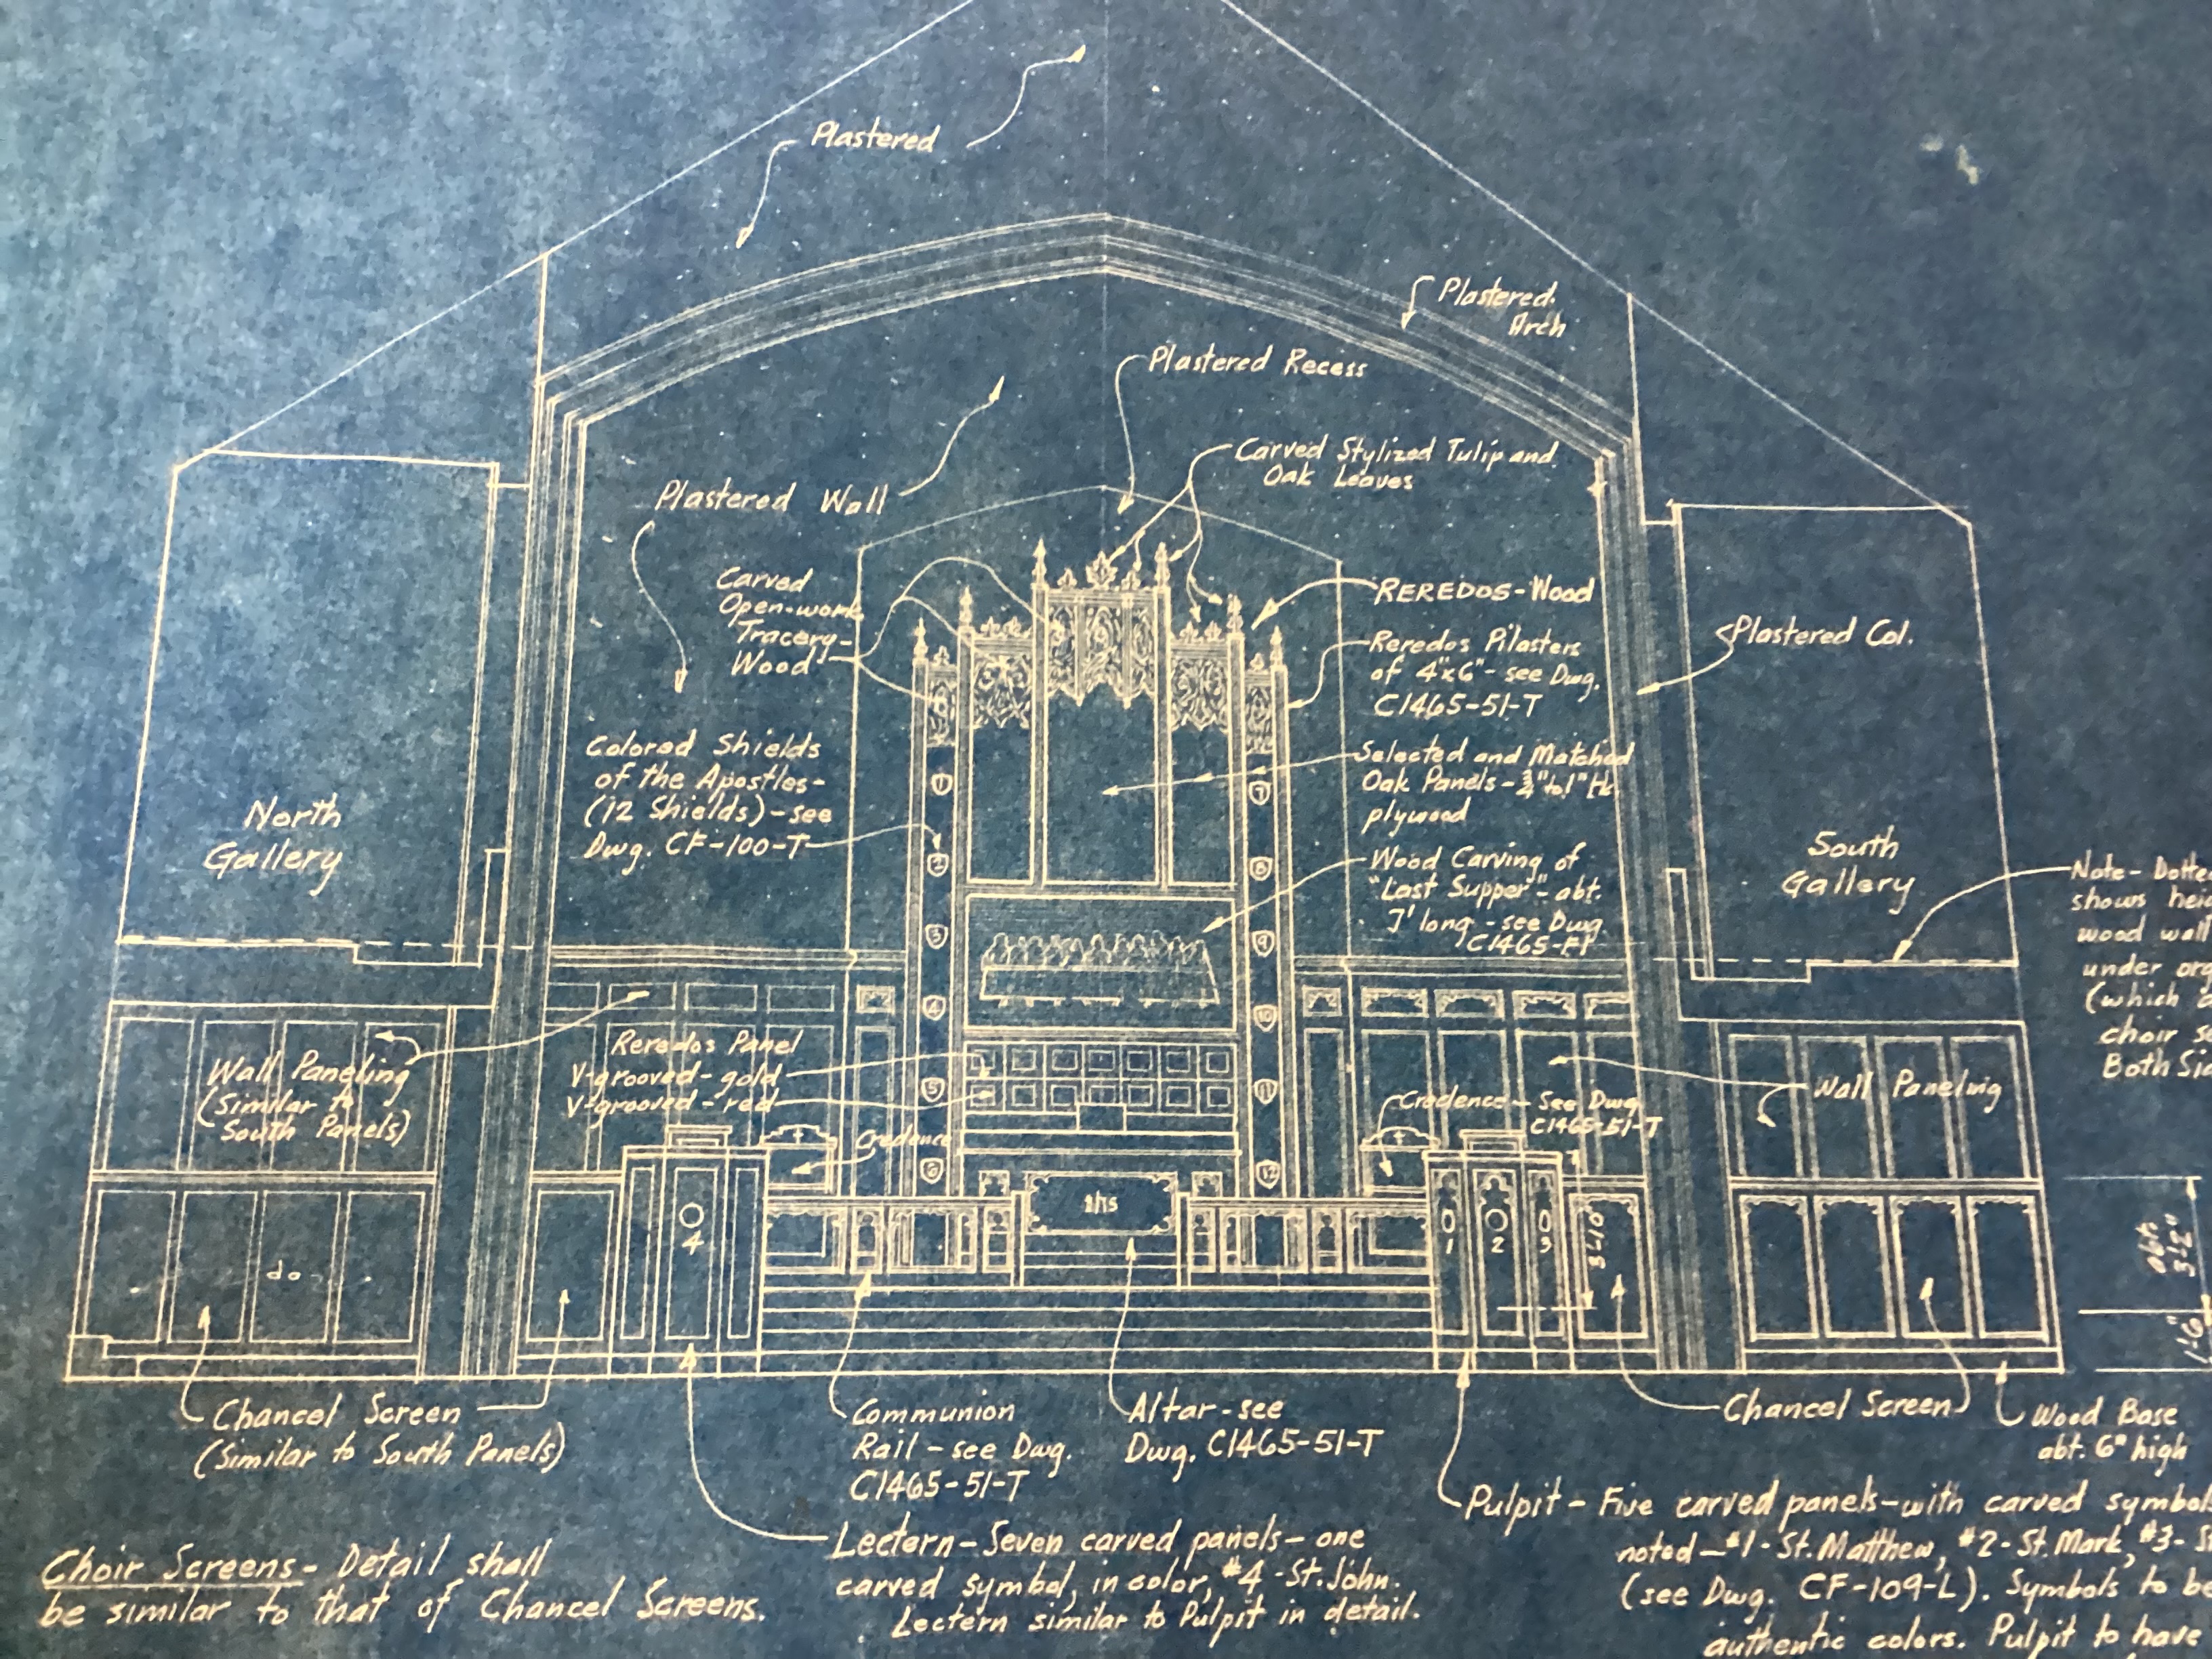 Plastered
Plastered
Arch
Plastered Recess
Carved Stylized Tulip and
Oak Leaves
Plastered Wall
Carved
Open-work
Tracery-
Wood
REREDOS-Wood
Reredos Pilasters
of 4"x6"- see Dwg.
C1465-51-T
Plastered Col.
Selected and Matched
Oak Panels - 3/4" to 1" tk
plywood
Colored Shields
of the Apostles-
(12 Shields)-see
Dwg. CF-100-T
North
Gallery
South
Gallery
Wood Carving of
"Last Supper"- abt.
7' long - see Dwg
Note- Dotte
shows hei
wood wall
under org
(which
choir s
Both Si
1
2
3
4
5
6
7
8
9
10
11
12
Wall Paneling
(Similar to
South Panels)
Reredos Panel
V-grooved- gold
V-grooved - red
Credence
Credence - See Dwg
C1465-51-T
Wall Paneling
ihs
4
1
2
3
3'-10"
do
abt.
3'-2"
1'-6"
Chancel Screen
(Similar to South Panels)
Communion
Rail - see Dwg.
C1465-51-T
Altar-see
Dwg. C1465-51-T
Chancel Screen
Wood Base
abt. 6" high
Lectern-Seven carved panels- one
carved symbol, in color, #4 -St. John.
Lectern similar to Pulpit in detail.
Pulpit - Five carved panels-with carved symbol
noted-#1-St. Matthew, #2-St. Mark, #3- S
(see Dwg. CF-109-L). Symbols to be
authentic colors. Pulpit to have
Choir Screens- Detail shall
be similar to that of Chancel Screens.